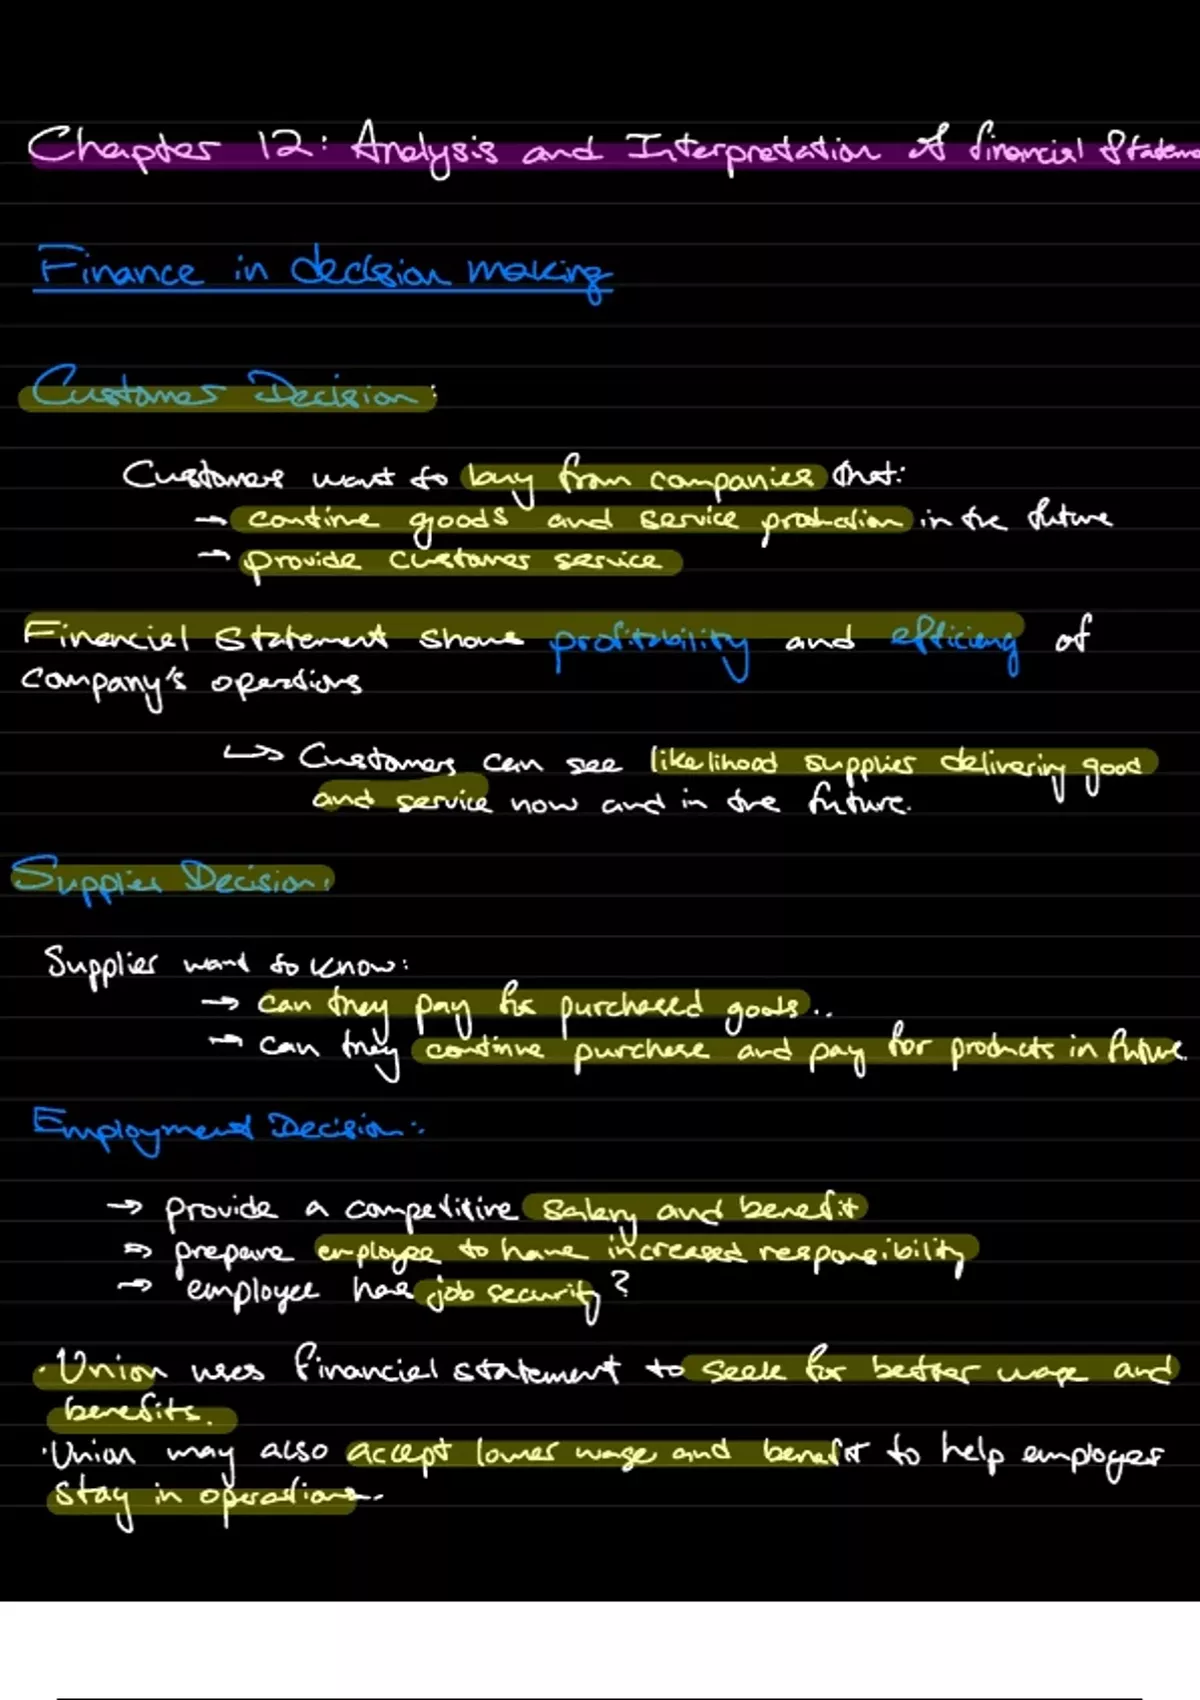 Chapter 12: Analysis and Interpretation of financial Stateme
Finance in decision making
Customer Decision:
Customers want to buy from companies that:
→ continue goods and service production in the future
→ provide customer service
Financial Statement shows profitability and efficiency of
company's operations
↳ Customers can see likelihood supplier delivering good
and service now and in the future.
Supplier Decision:
Supplier want to know:
→ can they pay for purchased goods..
→ can they continue purchase and pay for products in future.
Employment Decision:
→ provide a competitive salary and benefit
→ prepare employee to have increased responsibility
→ employee have job security?
· Union uses financial statement to seek for better wage and
benefits.
· Union may also accept lower wage and benefit to help employer
stay in operations.